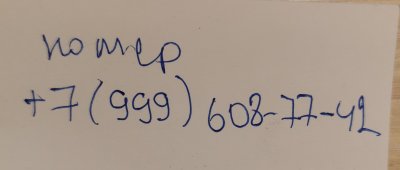 номер
+7(999) 608-77-42